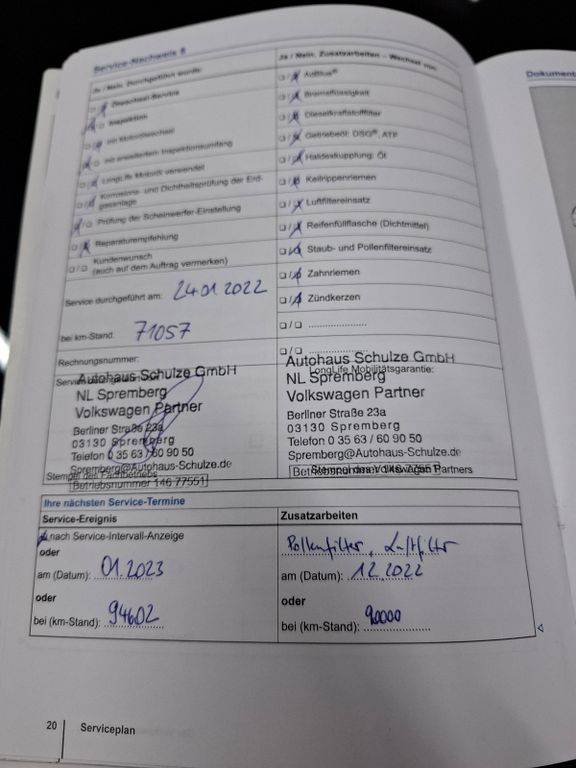 Service-Nachweis 8
Dokument
Ja / Nein. Durchgeführt wurde:
Ja / Nein. Zusatzarbeiten – Wechsel von:
Ölwechsel-Service
Inspektion
mit Motorölwechsel
mit erweitertem Inspektionsumfang
LongLife Motoröl verwendet
Korrosions- und Dichtheitsprüfung der Erd-
gasanlage
Prüfung der Scheinwerfer-Einstellung
Reparaturempfehlung
Kundenwunsch
(auch auf dem Auftrag vermerken)
Service durchgeführt am: 24.01.2022
bei km-Stand: 71057
Rechnungsnummer:
AdBlue®
Bremsflüssigkeit
Dieselkraftstofffilter
Getriebeöl: DSG®, ATP
Haldexkupplung: Öl
Keilrippenriemen
Luftfiltereinsatz
Reifenfüllflasche (Dichtmittel)
Staub- und Pollenfiltereinsatz
Zahnriemen
Zündkerzen
Autohaus Schulze GmbH
NL Spremberg
Volkswagen Partner
Berliner Straße 23a
03130 Spremberg
Telefon 0 35 63 / 60 90 50
Spremberg@Autohaus-Schulze.de
Stempel des Fachbetriebs
Betriebsnummer 146 77551
Autohaus Schulze GmbH
LongLife Mobilitätsgarantie:
NL Spremberg
Volkswagen Partner
Berliner Straße 23a
03130 Spremberg
Telefon 0 35 63 / 60 90 50
Spremberg@Autohaus-Schulze.de
Stempel des Volkswagen Partners
Betriebsnummer 146 77551
Ihre nächsten Service-Termine
Service-Ereignis
nach Service-Intervall-Anzeige
oder
am (Datum): 01.2023
oder
bei (km-Stand): 94602
Zusatzarbeiten
Pollenfilter, Luftfilter
am (Datum): 12.2022
oder
bei (km-Stand): 90000
20
Serviceplan